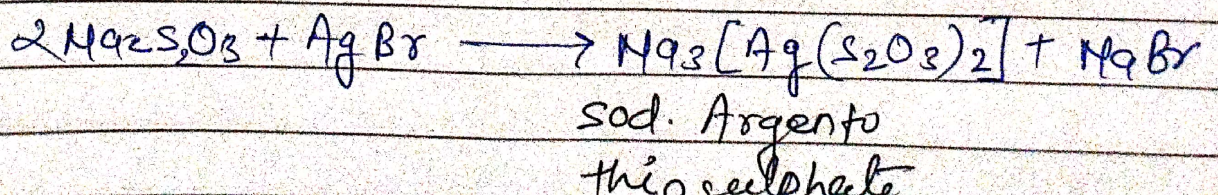 2Na2S2O3 + AgBr ⟶ Na3[Ag(S2O3)2] + NaBr
sod. Argento
thiosulphate